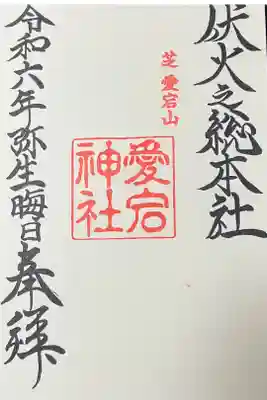 伏火之総本社
芝愛宕山
愛宕
神社
令和六年弥生晦日奉拝